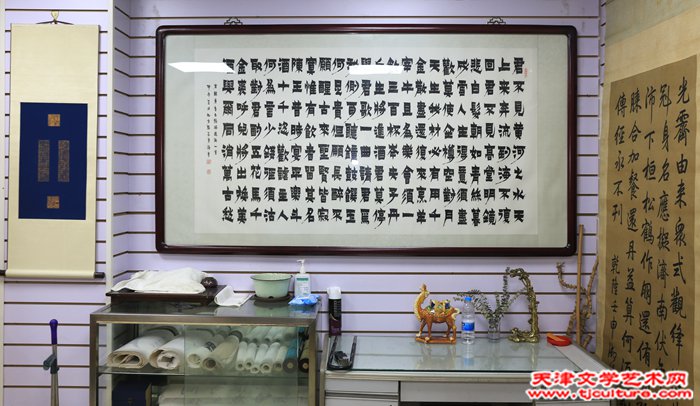 君不見黃河之水天
上來奔流到海不復
回君不見高堂明鏡
悲白髮朝如青絲暮
成雪人生得意須盡
歡莫使金樽空對月
天生我材必有用千
金散盡還復來烹羊
宰牛且為樂會須一
飲三百杯岑夫子丹
丘生將進酒君莫停
與君歌一曲請君為
我側耳聽鐘鼓饌玉
何足貴但願長醉不
願醒古來聖賢皆寂
寞惟有飲者留其名
陳王昔時宴平樂斗
酒十千恣歡謔主人
何為言少錢徑須沽
取對君酌五花馬千
金裘呼兒將出換美
酒與爾同銷萬古愁
光霽由來眾式觀鋒
冠身名應挺濟南伏
沛下桓松鶴作朋還侑
臻合加餐還丹益算何
傳經永不刊 乾隆壬申
天津文学艺术网
www.tjculture.com